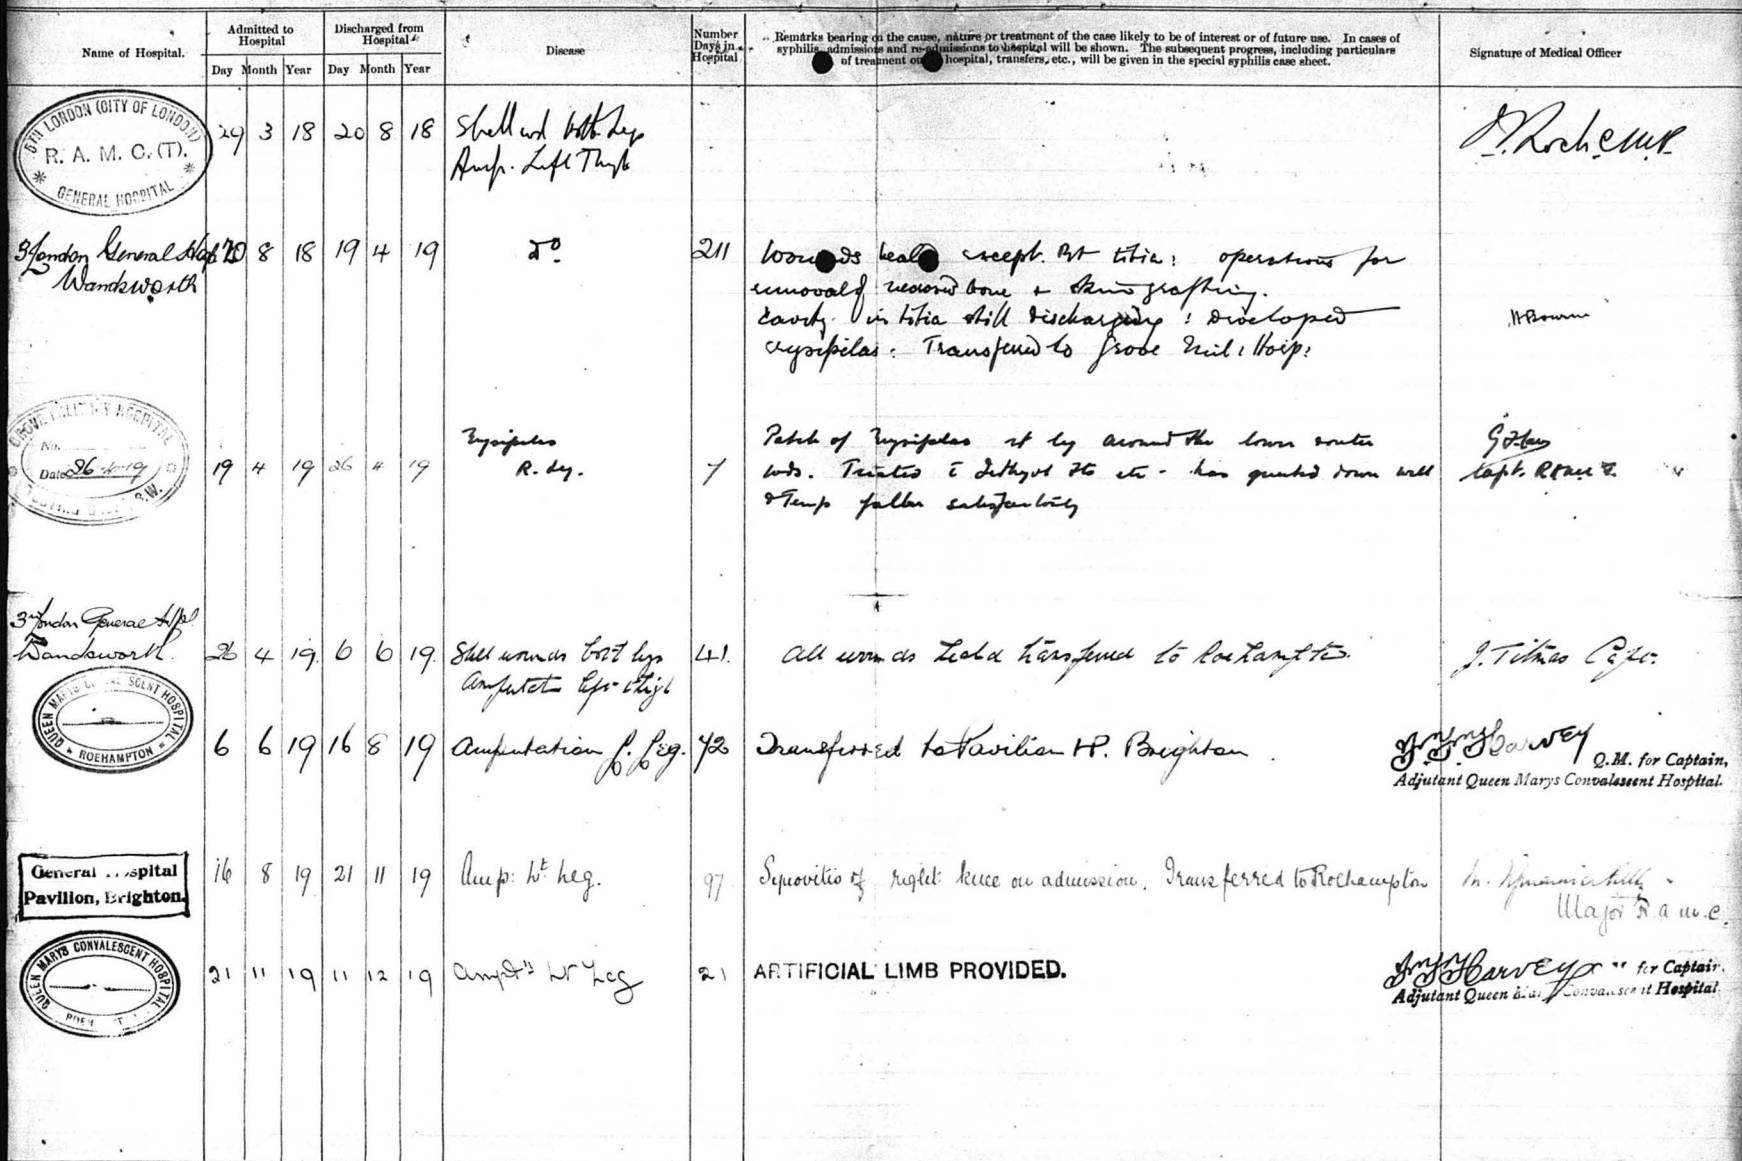 Name of Hospital.
Admitted to Hospital
Discharged from Hospital
Disease
Number Days in Hospital
Remarks bearing on the cause, nature or treatment of the case likely to be of interest or of future use. In cases of
syphilis, admissions and re-admissions to hospital will be shown. The subsequent progress, including particulars
of treatment out hospital, transfers, etc., will be given in the special syphilis case sheet.
Signature of Medical Officer
Day Month Year Day Month Year
5TH LONDON (CITY OF LONDON)
R. A. M. C. (T).
GENERAL HOSPITAL
29 3 18 20 8 18 Shell wd both Legs
Amp. Left Thigh
3 London General Hosp 20 8 18 19 4 19 Do 211 Wounds heal except Rt tibia: operations for
Wandsworth
removal of bone + skin grafting.
Cavity in tibia still discharging: Developed
erysipelas. Transferred to Grove Mil: Hosp:
H Bourne
GROVE MILITARY HOSPITAL
No.
Date 26-4-19
TOOTING S.W.
19 4 19 26 4 19 Erysipelas
R. Leg. 7
Patch of Erysipelas rt leg around the lower
wds. Treated c Icthyol etc - has quieted down well
& Temp fallen satisfactorily
Capt. R
3rd London General Hspl
Wandsworth. 26 4 19. 6 6 19. Shell wounds both legs 41. All wounds healed transferred to Roehampton. J. Titmas Capt.
Amputat left thigh
QUEEN MARYS CONVALESCENT HOSPITAL
ROEHAMPTON
6 6 19 16 8 19 Amputation L. Leg. 72 Transferred to Pavilion HP. Brighton. Harvey
Q.M. for Captain,
Adjutant Queen Marys Convalescent Hospital.
General Hospital
Pavilion, Brighton.
16 8 19 21 11 19 Amp: Lt. Leg. 97 Synovitis of right knee on admission. Transferred to Roehampton M.
Major R.a.m.c.
QUEEN MARYS CONVALESCENT HOSPITAL
21 11 19 11 12 19 Amptn Lt Leg 21 ARTIFICIAL LIMB PROVIDED. Harvey for Captain.
Adjutant Queen Marys Convalescent Hospital